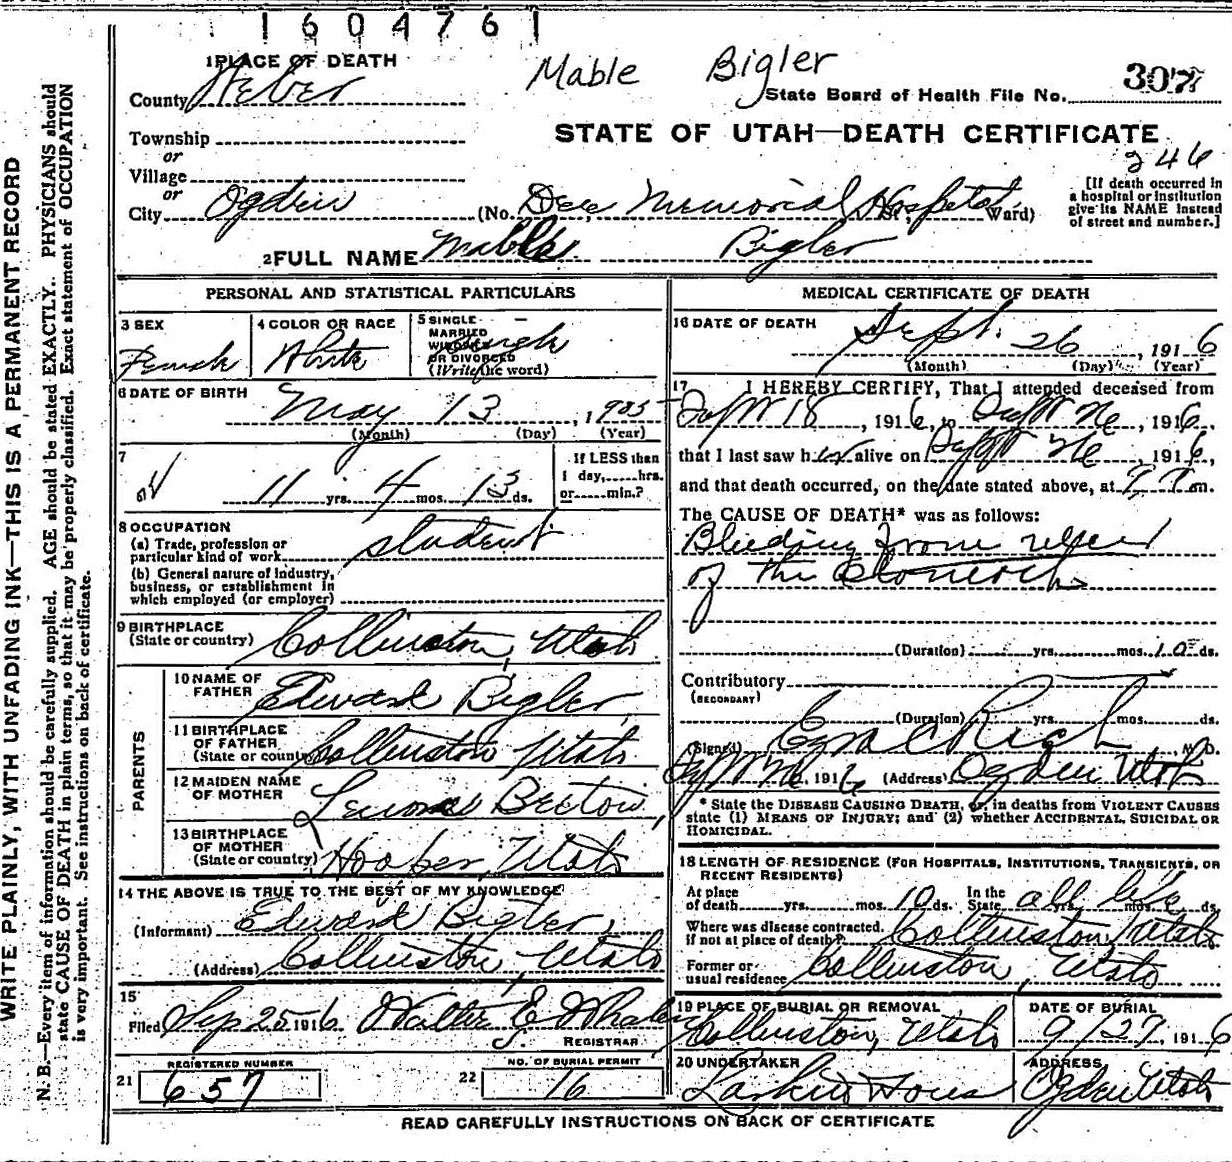 1604761
1 PLACE OF DEATH
Mable Bigler
County Weber
State Board of Health File No. 307
Township
or
STATE OF UTAH—DEATH CERTIFICATE
246
Village
or
City Ogden (No. Dee Memorial Hospital St., Ward)
[If death occurred in
a hospital or institution
give its NAME instead
of street and number.]
2 FULL NAME Mable Bigler
PERSONAL AND STATISTICAL PARTICULARS
3 SEX
Female
4 COLOR OR RACE
White
5 SINGLE
MARRIED
WIDOWED
OR DIVORCED
(Write the word)
Single
6 DATE OF BIRTH
May 13, 1905
(Month) (Day) (Year)
7
11 yrs. 4 mos. 13 ds.
If LESS than
1 day,......hrs.
or......min.?
8 OCCUPATION
(a) Trade, profession or
particular kind of work student
(b) General nature of industry,
business, or establishment in
which employed (or employer)
9 BIRTHPLACE
(State or country) Collinston, Utah
PARENTS
10 NAME OF
FATHER Edward Bigler
11 BIRTHPLACE
OF FATHER
(State or country) Collinston Utah
12 MAIDEN NAME
OF MOTHER
13 BIRTHPLACE
OF MOTHER
(State or country) Hooper, Utah
14 THE ABOVE IS TRUE TO THE BEST OF MY KNOWLEDGE
(Informant) Edward Bigler,
(Address) Collinston, Utah
15
Filed Sep 25 1916 Walter E. Whalen
REGISTRAR
REGISTERED NUMBER
21 657
NO. OF BURIAL PERMIT
22 16
MEDICAL CERTIFICATE OF DEATH
16 DATE OF DEATH
Sept. 26, 1916
(Month) (Day) (Year)
17 I HEREBY CERTIFY, That I attended deceased from
Sept 18, 1916, to Sept 26, 1916,
that I last saw her alive on Sept 26, 1916,
and that death occurred, on the date stated above, at m.
The CAUSE OF DEATH* was as follows:
Bleeding from ulcer
of the Stomach
(Duration) yrs. mos. 10 ds.
Contributory
(SECONDARY)
(Duration) yrs. mos. ds.
(Signed) Ezra C Rich, M.D.
1916 (Address) Ogden Utah
* State the DISEASE CAUSING DEATH, or, in deaths from VIOLENT CAUSES
state (1) MEANS OF INJURY; and (2) whether ACCIDENTAL, SUICIDAL OR
HOMICIDAL.
18 LENGTH OF RESIDENCE (FOR HOSPITALS, INSTITUTIONS, TRANSIENTS, OR
RECENT RESIDENTS)
At place
of death yrs. mos. 10 ds.
In the
State all life yrs. mos. ds.
Where was disease contracted,
if not at place of death? Collinston, Utah
Former or
usual residence Collinston, Utah
19 PLACE OF BURIAL OR REMOVAL
Collinston, Utah
DATE OF BURIAL
9/27, 1916
20 UNDERTAKER
Larkin Sons
ADDRESS
Ogden Utah
READ CAREFULLY INSTRUCTIONS ON BACK OF CERTIFICATE
WRITE PLAINLY, WITH UNFADING INK—THIS IS A PERMANENT RECORD
N. B.—Every item of information should be carefully supplied. AGE should be stated EXACTLY. PHYSICIANS should
state CAUSE OF DEATH in plain terms, so that it may be properly classified. Exact statement of OCCUPATION
is very important. See instructions on back of certificate.